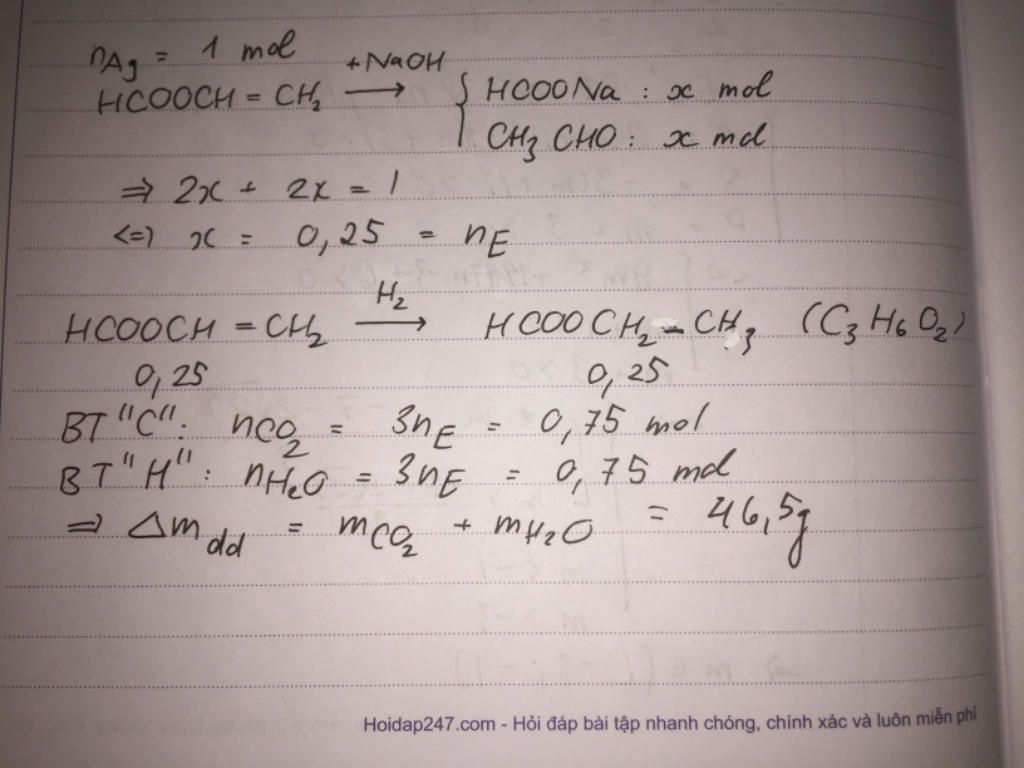 nAg = 1 mol
HCOOCH = CH2 +NaOH → { HCOONa : x mol
CH3 CHO : x mol
⇒ 2x + 2x = 1
<=> x = 0,25 = nE
HCOOCH = CH2 H2 → HCOO CH2 - CH3 (C3 H6 O2)
0,25 0,25
BT "C": nCO2 = 3nE = 0,75 mol
BT "H" : nH2O = 3nE = 0,75 mol
⇒ Δm dd = mCO2 + mH2O = 46,5g
Hoidap247.com - Hỏi đáp bài tập nhanh chóng, chính xác và luôn miễn phí